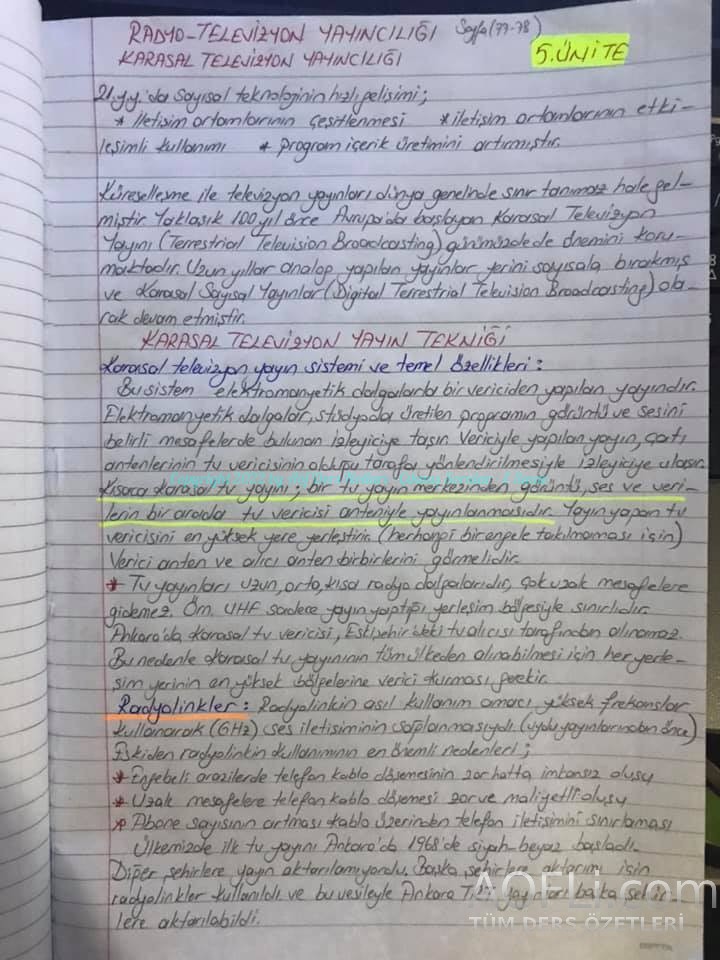 RADYO-TELEVİZYON YAYINCILIĞI Sayfa (77-78)
KARASAL TELEVİZYON YAYINCILIĞI 5. ÜNİTE
21.yy'da sayısal teknolojinin hızlı gelişimi;
* İletişim ortamlarının çeşitlenmesi * iletişim ortamlarının etki-
leşimli kullanımı * program içerik üretimini artırmıştır.
Küreselleşme ile televizyon yayınları dünya genelinde sınır tanımaz hale gel-
miştir. Yaklaşık 100 yıl önce Avrupa'da başlayan Karasal Televizyon
Yayını (Terrestrial Television Broadcasting) günümüzde de önemini koru-
maktadır. Uzun yıllar analog yapılan yayınlar yerini sayısala bırakmış
ve Karasal Sayısal Yayınlar (Digital Terrestrial Television Broadcasting) ola-
rak devam etmiştir.
KARASAL TELEVİZYON YAYIN TEKNİĞİ
Karasal televizyon yayın sistemi ve temel özellikleri:
Bu sistem elektromanyetik dalgalarla bir vericiden yapılan yayındır.
Elektromanyetik dalgalar, stüdyoda üretilen programın görüntü ve sesini
belirli mesafelerde bulunan izleyiciye taşır. Vericiyle yapılan yayın, çatı
antenlerinin tv vericisinin olduğu tarafa yönlendirilmesiyle izleyiciye ulaşır.
Kısaca karasal tv yayını; bir tv yayın merkezinden görüntü, ses ve veri-
lerin bir arada tv vericisi anteniyle yayınlanmasıdır. Yayın yapan tv
vericisini en yüksek yere yerleştirir. (herhangi bir engele takılmaması için)
Verici anten ve alıcı anten birbirlerini görmelidir.
* Tv yayınları uzun, orta, kısa radyo dalgalarıdır, çok uzak mesafelere
gidemez. Örn. UHF sadece yayın yaptığı yerleşim bölgesiyle sınırlıdır.
Ankara'da karasal tv vericisi, Eskişehir'deki tv alıcısı tarafından alınamaz.
Bu nedenle karasal tv yayınının tüm ülkeden alınabilmesi için her yerle-
şim yerinin en yüksek bölgelerine verici kurması gerekir.
Radyolinkler: Radyolinkin asıl kullanım amacı, yüksek frekanslar
kullanarak (GHz) ses iletişiminin sağlanmasıydı. (uydu yayınlarından önce)
Eskiden radyolinkin kullanımının en önemli nedenleri;
* Engebeli arazilerde telefon kablo döşemesinin zor hatta imkansız oluşu
* Uzak mesafelere telefon kablo döşemesi zor ve maliyetli oluşu
* Abone sayısının artması kablo üzerinden telefon iletişimini sınırlaması
Ülkemizde ilk tv yayını Ankara'da 1968'de siyah-beyaz başladı.
Diğer şehirlere yayın aktarılamıyordu. Başka şehirlere aktarım için
radyolinkler kullanıldı ve bu vesileyle Ankara TRT yayınları başka şehir-
lere aktarılabildi.
AOFLi.com
TÜM DERS ÖZETLERİ